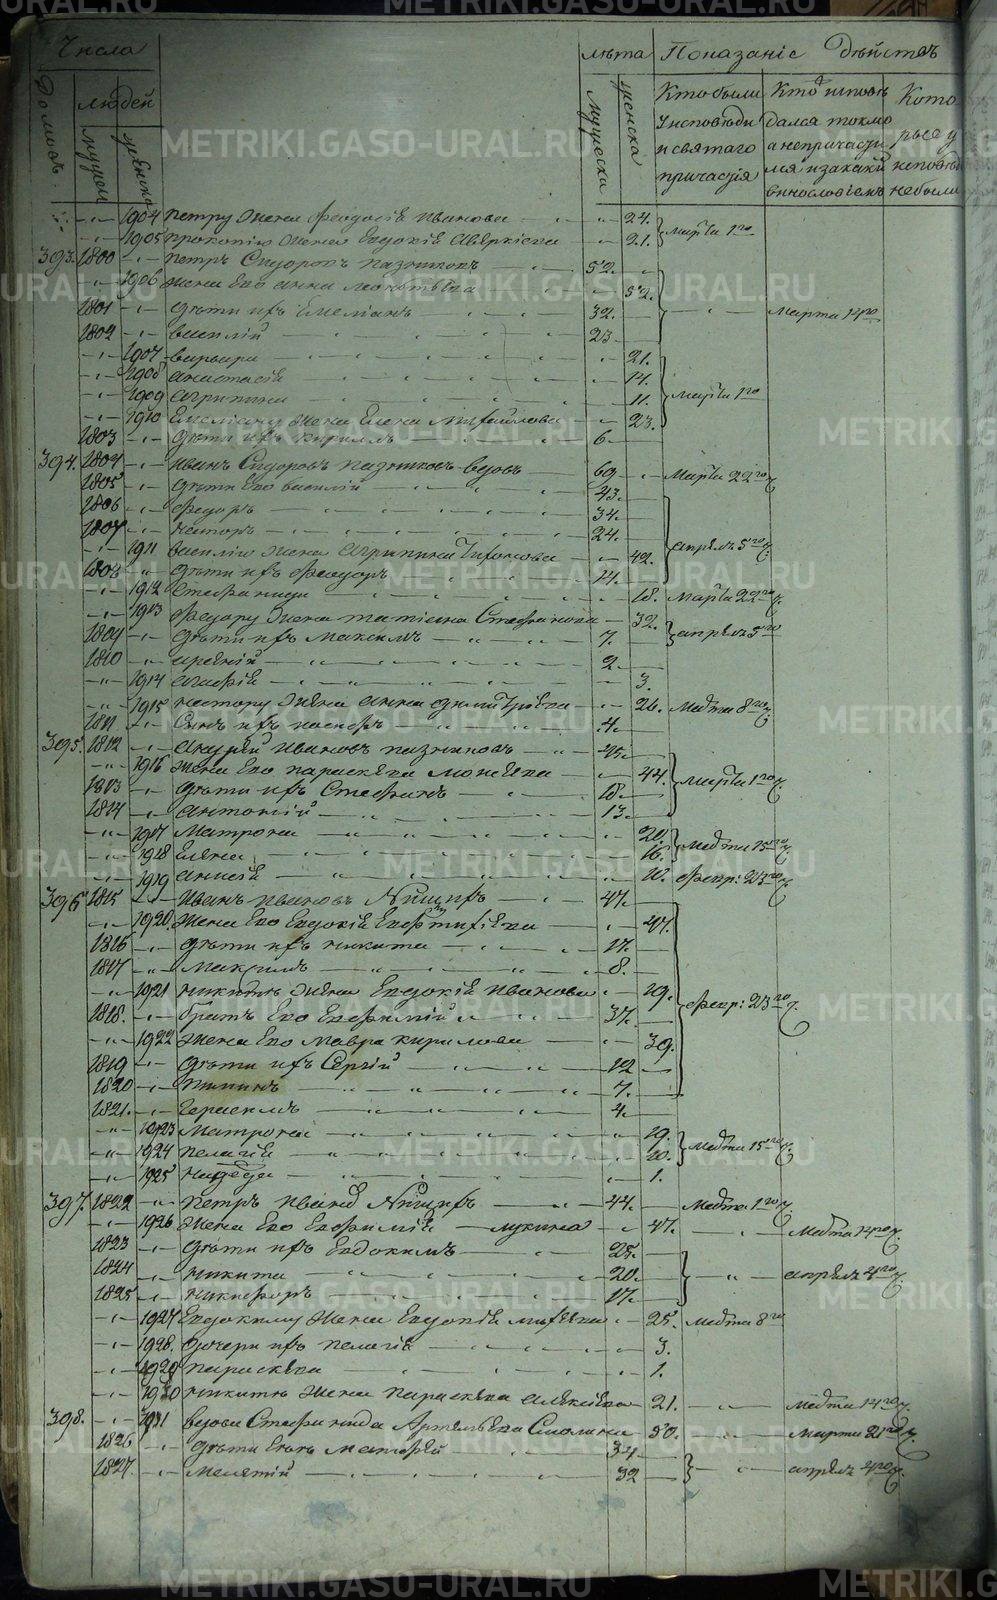 Числа лѣта Показанiе дѣйства
Домовъ людей мужеска женска Кто были Кто исповѣ Кото
мужеск женска У исповѣди дался токмо рые у
и святаго а непричасти исповѣд
причастiя лся и за какимъ
винословiемъ небыли
-"- 1904 петру жена феодосiя иванова -"- 24.
-"- 1905 прокопiю жена Евдокiя Аверкiева -"- 21. марта 1го
393. 1800 -"- петръ Сидоровъ пазниковъ 52
-"- 1906 жена Его анна 52.
1801 -"- дѣти ихъ Емелiанъ 32. марта 14го
1802 -"- василiй 23
-"- 1907 варвара 21.
-"- 1908 анастасiя 14.
-"- 1909 агрипина 11. марта 1го
-"- 1910 Емелiану жена Елена михайлова 23.
1803 -"- дѣти ихъ кириллъ 6
394. 1804 -"- иванъ Сидоровъ пазниковъ вдовъ 69 марта 22го
1805 -"- дѣти Его василiй 43.
1806 -"- федоръ 34.
1807 -"- несторъ 24.
-"- 1911 василiю жена агрипина Тихонова 42. апрѣль 5го
1808 -"- дѣти ихъ феодоръ 14.
-"- 1912 Стефанида 18. марта 22го
-"- 1913 федору жена татiана Стефанова 32.
1809 -"- дѣти ихъ максимъ 7. апрѣль 5го
1810 -"- арсенiй 2
-"- 1914 агафiя 3.
-"- 1915 нестору жена анна дмитрiева 26. марта 8го
1811 -"- Сынъ ихъ иосифъ 4.
395. 1812 -"- андрей ивановъ пазниковъ 45.
-"- 1916 жена Его параскева моисеева 44.
1813 -"- дѣти ихъ Стефанъ 18. марта 1го
1814 -"- антонiй 13.
-"- 1917 матрона 20.
-"- 1918 Елена 16. марта 15го
-"- 1919 анисiя 10. февр: 23го
396 1815 -"- иванъ ивановъ 47.
-"- 1920. жена Его Евдокiя Евстифiева 47.
1816 -"- дѣти ихъ никита 17.
1817 -"- максимъ 8.
-"- 1921 никитѣ жена Евдокiя иванова 19. февр: 23го
1818. -"- братъ Его Евфимiй 37.
-"- 1922 жена Его мавра кирилова 39.
1819 -"- дѣти ихъ Сергiй 12
1820 -"- 7.
1821. -"- герасимъ 4.
-"- 1923 матрона 19.
-"- 1924 пелагiя 10. марта 15го
-"- 1925 надежда 1.
397. 1822 -"- петръ ивановъ 44. марта 1го
-"- 1926 жена Его Евфимiя лукина 47. марта 14го
1823 -"- дѣти ихъ Евдокимъ 25.
1824 -"- никита 20. апрѣль 4го
1825 -"- никифоръ 17.
-"- 1927 Евдокиму жена Евдокiя михеева 25. марта 8го
-"- 1928. дочери ихъ пелагiя 3.
-"- 1929 параскева 1.
-"- 1930 никитѣ жена параскева алексѣева 21. марта 14го
398. -"- 1931 вдова Стефанида Артемьева Смолина 50. марта 21го
1826 -"- дѣти Ея матфей 34
1827. -"- мелетiй 32 апрѣль 4го
METRIKI.GASO-URAL.RU